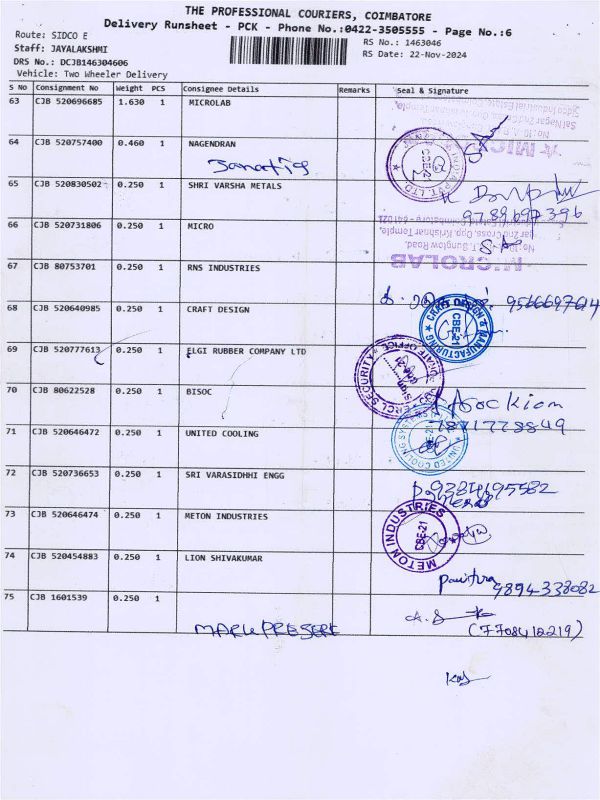 THE PROFESSIONAL COURIERS, COIMBATORE
Delivery Runsheet - PCK - Phone No.:0422-3505555 - Page No.:6
Route: SIDCO E
RS No.: 1463046
Staff: JAYALAKSHMI
RS Date: 22-Nov-2024
DRS No.: DCJB146304606
Vehicle: Two Wheeler Delivery
S No Consignment No Weight PCS Consignee Details Remarks Seal & Signature
63 CJB 520696685 1.630 1 MICROLAB
64 CJB 520757400 0.460 1 NAGENDRAN
CBE-21
65 CJB 520830502 0.250 1 SHRI VARSHA METALS
9789697396
66 CJB 520731806 0.250 1 MICRO
MICROLAB
67 CJB 80753701 0.250 1 RNS INDUSTRIES
9566697614
68 CJB 520640985 0.250 1 CRAFT DESIGN
CRAFT DESIGN & MANUFACTURING
CBE-21
69 CJB 520777613 0.250 1 ELGI RUBBER COMPANY LTD
SECURITY
70 CJB 80622528 0.250 1 BISOC
71 CJB 520646472 0.250 1 UNITED COOLING
UNITED COOLING SYSTEMS
72 CJB 520736653 0.250 1 SRI VARASIDHHI ENGG
73 CJB 520646474 0.250 1 METON INDUSTRIES
METON INDUSTRIES
CBE-21
74 CJB 520454883 0.250 1 LION SHIVAKUMAR
Pavithra
9894338082
75 CJB 1601539 0.250 1
(7708412219)